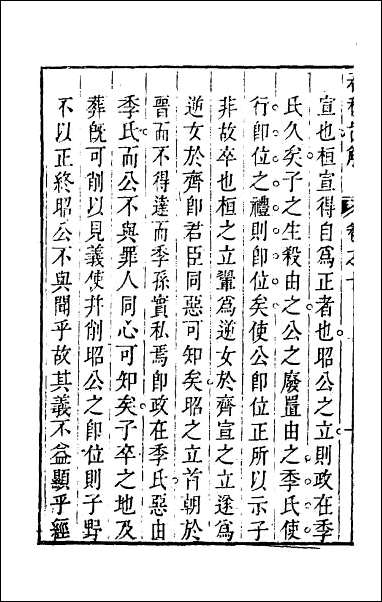 宣也桓宣得自為正者也昭公之立則政在季
氏久矣子之生殺由之公之廢置由之季氏使
行卽位之禮則卽位矣使公卽位正所以示子
非故卒也桓之立翬為逆女於齊宣之立遂為
逆女於齊卽君臣同惡可知矣昭之立首朝於
晉而不得達而季孫實私焉卽政在季氏惡由
季氏而公不與罪人同心可知矣子卒之地及
葬旣可削以見義使并削昭公之卽位則子野
不以正終昭公不與聞乎故其義不益顯乎經